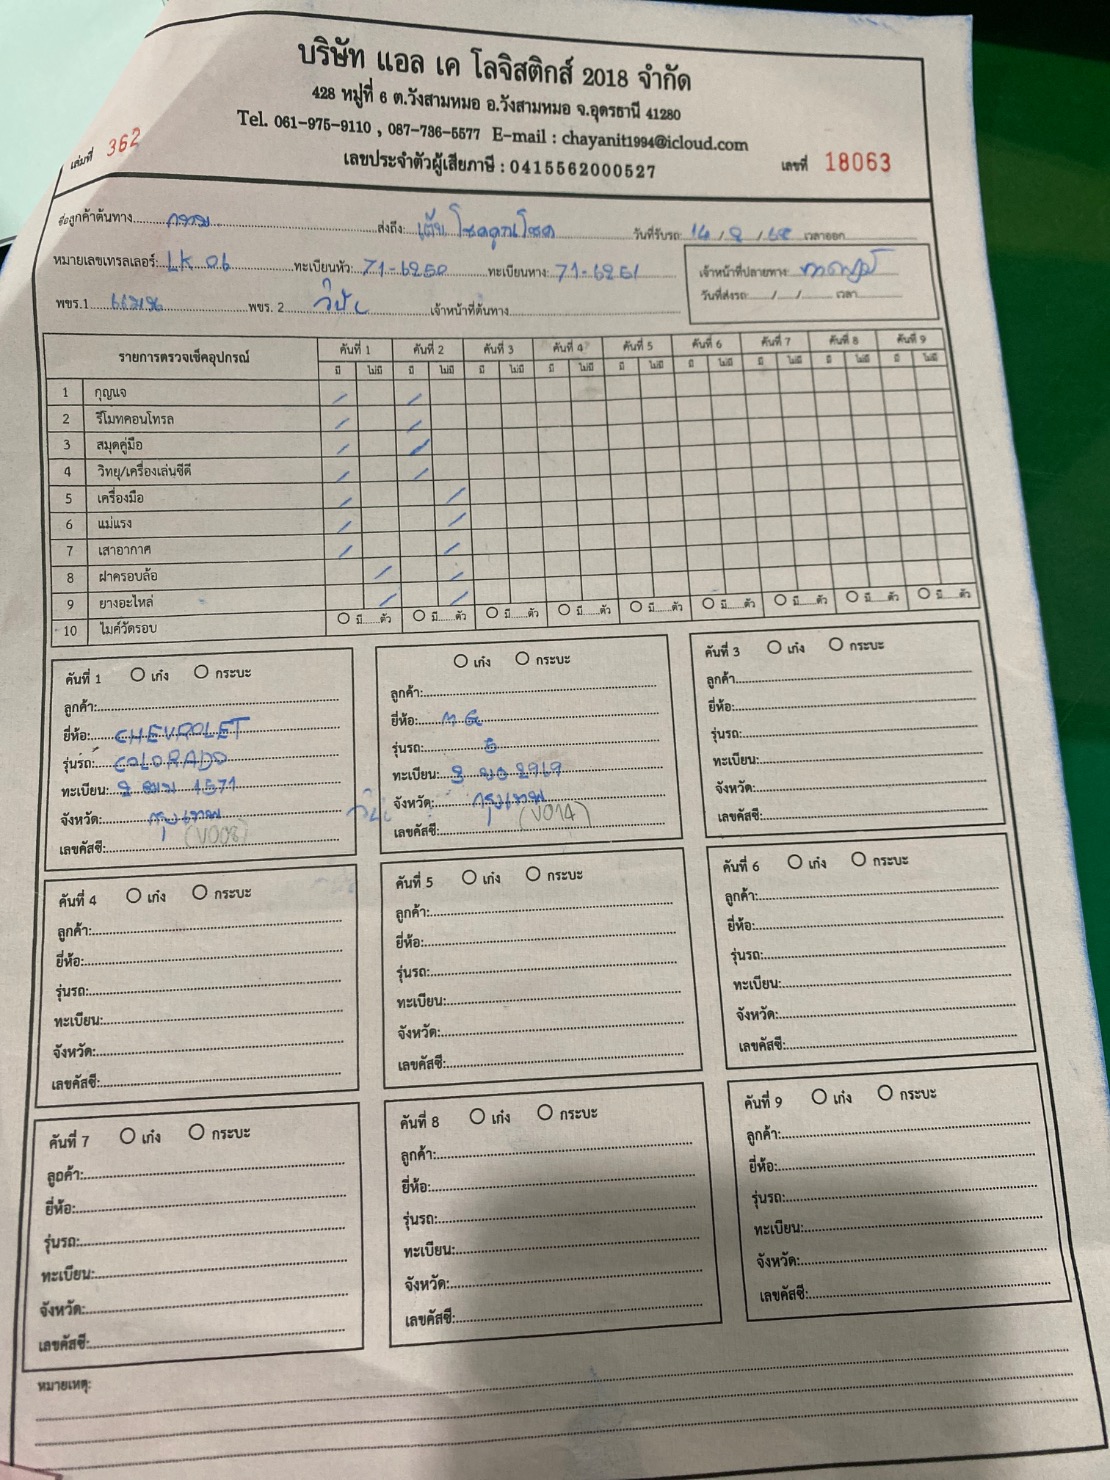 บริษัท แอล เค โลจิสติกส์ 2018 จำกัด
428 หมู่ที่ 6 ต.วังสามหมอ อ.วังสามหมอ จ.อุดรธานี 41280
Tel. 061-975-9110 , 087-736-5577 E-mail : chayanit1994@icloud.com
เล่มที่ 362 เลขประจำตัวผู้เสียภาษี : 0415562000527 เลขที่ 18063
ชื่อลูกค้าต้นทาง ส่งถึง: วันที่รับรถ: 14 / 2 / 68 เวลาออก
หมายเลขเทรลเลอร์: LK 06 ทะเบียนหัว: 71-6250 ทะเบียนหาง: 71-6251 เจ้าหน้าที่ปลายทาง
พขร.1 พขร. 2 เจ้าหน้าที่ต้นทาง วันที่ส่งรถ / / เวลา
รายการตรวจเช็คอุปกรณ์ คันที่ 1 คันที่ 2 คันที่ 3 คันที่ 4 คันที่ 5 คันที่ 6 คันที่ 7 คันที่ 8 คันที่ 9
มี ไม่มี มี ไม่มี มี ไม่มี มี ไม่มี มี ไม่มี มี ไม่มี มี ไม่มี มี ไม่มี มี ไม่มี
1 กุญแจ / /
2 รีโมทคอนโทรล / /
3 สมุดคู่มือ / /
4 วิทยุ/เครื่องเล่นซีดี / /
5 เครื่องมือ / /
6 แม่แรง / /
7 เสาอากาศ / /
8 ฝาครอบล้อ / /
9 ยางอะไหล่ / /
10 ไมค์วัดรอบ มี.....ตัว มี.....ตัว มี.....ตัว มี.....ตัว มี.....ตัว มี.....ตัว มี.....ตัว มี.....ตัว มี.....ตัว
คันที่ 1 เก๋ง กระบะ
ลูกค้า:
ยี่ห้อ: CHEVROLET
รุ่นรถ: COLORADO
ทะเบียน: 2 ฒม 1571
จังหวัด: กรุงเทพ
(V008)
เลขคัสซี:
เก๋ง กระบะ
ลูกค้า:
ยี่ห้อ: MG
รุ่นรถ: 5
ทะเบียน: 3 ขอ 2919
จังหวัด: กรุงเทพ
(V014)
เลขคัสซี:
คันที่ 3 เก๋ง กระบะ
ลูกค้า
ยี่ห้อ:
รุ่นรถ:
ทะเบียน:
จังหวัด:
เลขคัสซี:
คันที่ 4 เก๋ง กระบะ
ลูกค้า:
ยี่ห้อ:
รุ่นรถ:
ทะเบียน:
จังหวัด:
เลขคัสซี:
คันที่ 5 เก๋ง กระบะ
ลูกค้า:
ยี่ห้อ:
รุ่นรถ:
ทะเบียน:
จังหวัด:
เลขคัสซี:
คันที่ 6 เก๋ง กระบะ
ลูกค้า:
ยี่ห้อ:
รุ่นรถ:
ทะเบียน:
จังหวัด:
เลขคัสซี:
คันที่ 7 เก๋ง กระบะ
ลูกค้า:
ยี่ห้อ:
รุ่นรถ:
ทะเบียน:
จังหวัด:
เลขคัสซี:
คันที่ 8 เก๋ง กระบะ
ลูกค้า:
ยี่ห้อ:
รุ่นรถ:
ทะเบียน:
จังหวัด:
เลขคัสซี:
คันที่ 9 เก๋ง กระบะ
ลูกค้า:
ยี่ห้อ:
รุ่นรถ:
ทะเบียน:
จังหวัด:
เลขคัสซี:
หมายเหตุ: